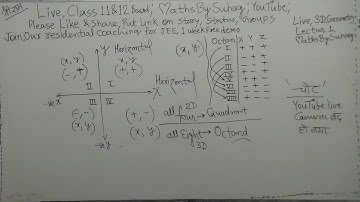 Live, Class 11&12 Board, Maths By Suhag; YouTube;
Please Like & Share, Put Link on Story, Status, Groups
Join Our residential Coaching for JEE, 1 week free demo
Live, 3D Geometry
Lecture 1
Maths By Suhag
Y Horizontal
(x, y)
(-, +)
II
(x, y)
(+, +)
I
Horizontal
-ve X
X
III
IV
(-, -)
(x, y)
(+, -)
(x, y)
-ve y
(x, y)
Octant X Y Z
I + + +
II
III
IV
V
VI
VII
VIII
all 2D
four → Quadrant
all Eight → Octand
3D
चोट
YouTube Live
Camera बंद
हो गया